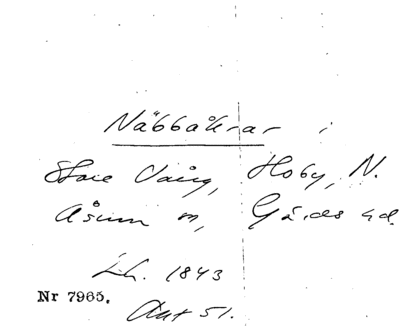 Näbbåkrar
Store Vång, Hoby, N.
Åsum sn, Gärds hd.
Lh. 1843
Nr 7965.
Akt 51.